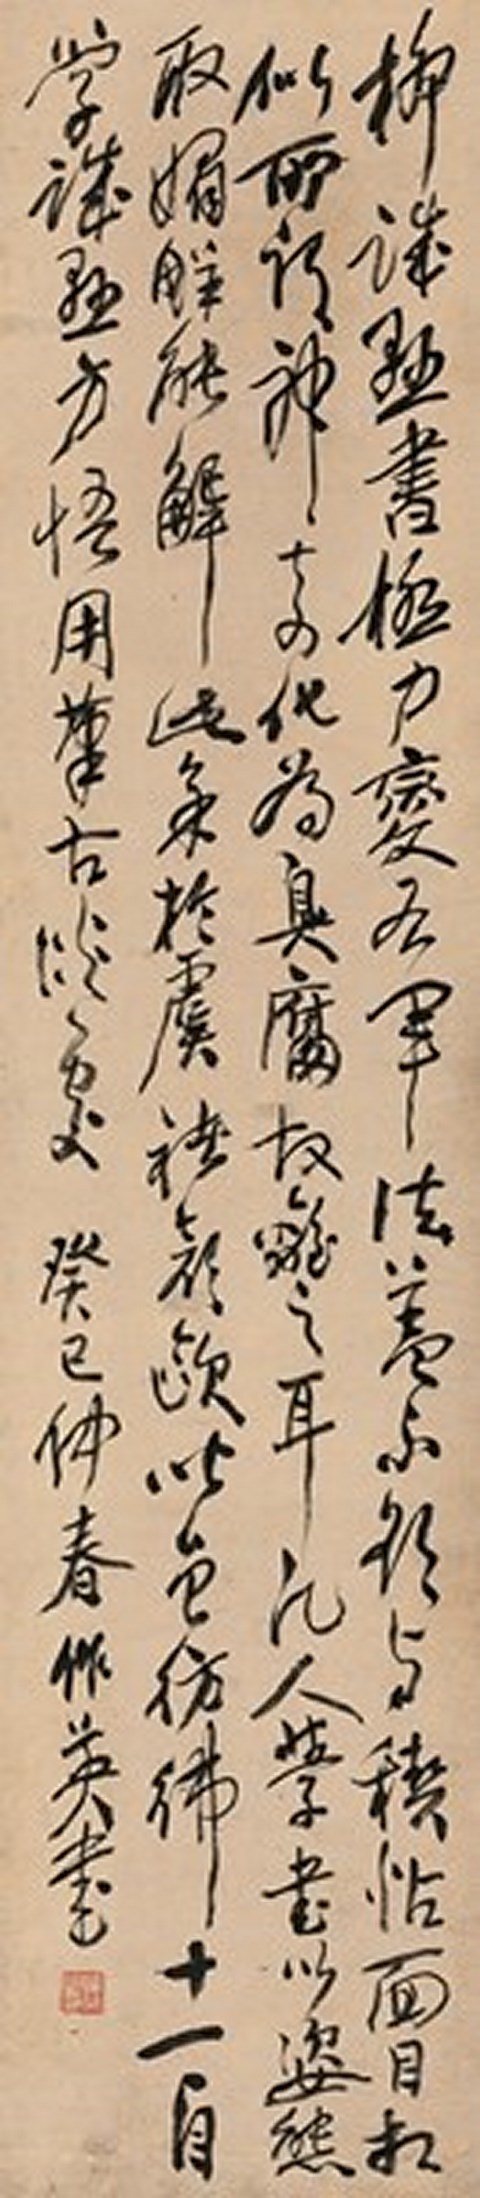 柳誠懸書極力變右軍法蓋不欲與禊帖面目相
似所謂神奇化為臭腐故離之耳凡人學書以姿態
取媚鮮能解此余於虞褚顏歐皆曾彷彿十一自
學誠懸方悟用筆古淡處 癸巳仲春作英書